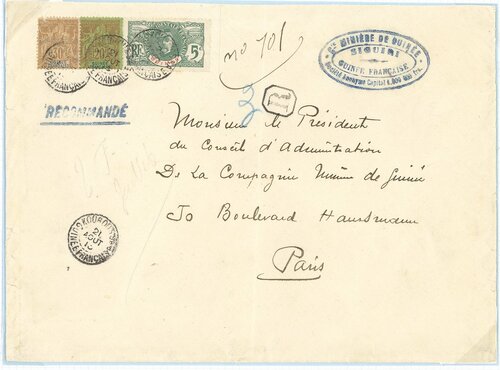 No 701
Cie MINIÈRE DE GUINÉE
SIGUIRI
GUINÉE FRANÇAISE
Société Anonyme Capital
R
RECOMMANDÉ
5
Monsieur le Président
du Conseil d'Administration
De La Compagnie Minière de Guinée
70 Boulevard Haussmann
Paris
KOUROUSSA
21
AOUT
10
GUINÉE FRANÇAISE